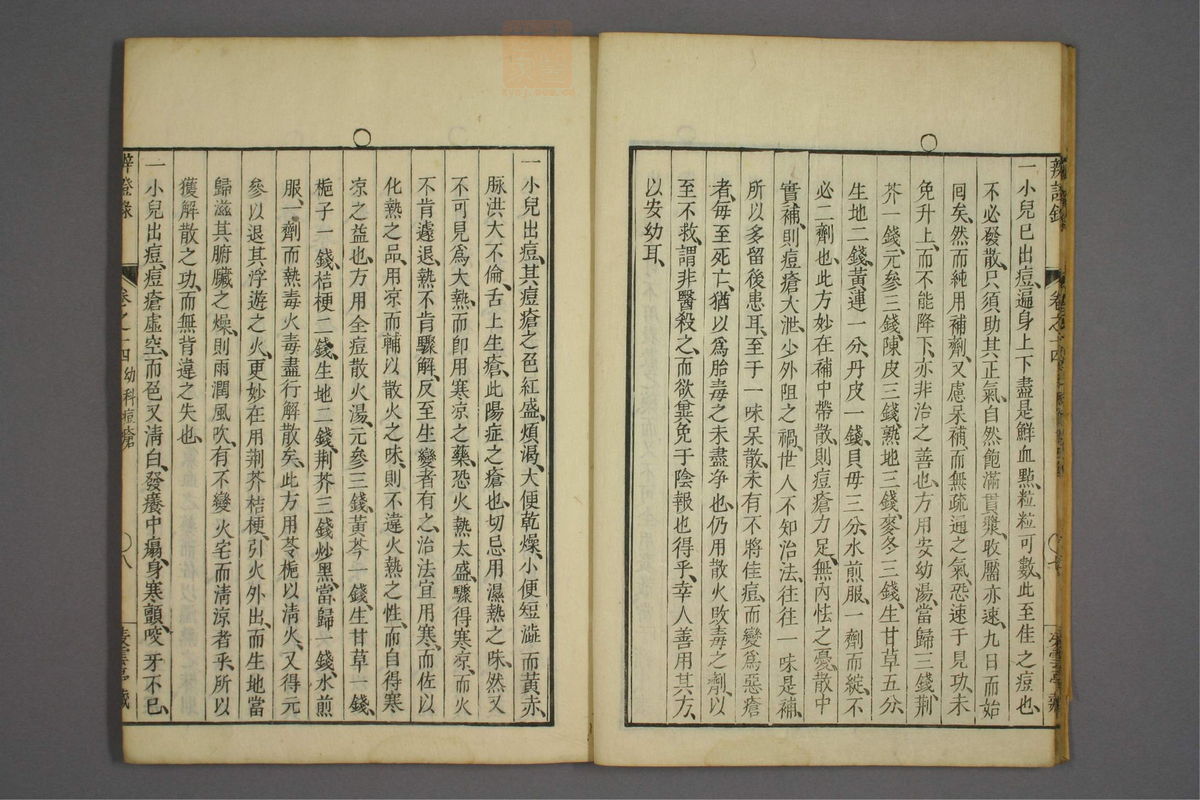 一小兒已出痘遍身上下盡是鮮血點、粒粒可數、此至佳之痘也、
不必發散、只須助其正氣、自然飽滿貫漿、收靨亦速、九日而始
囘矣、然而純用補劑、又慮呆補、而無疏通之氣、恐速于見功、未
免升上、而不能降下、亦非治之善也、方用安幼湯當歸三錢、荆
芥一錢、元參三錢、陳皮三錢、熟地三錢、麥冬三錢、生甘草五分、
生地二錢、黃連一分、丹皮一錢、貝母三分、水煎服、一劑而綻、不
必二劑也、此方妙在補中帶散、則痘瘡力足、無內怯之憂、散中
實補、則痘瘡大泄、少外阻之禍、世人不知治法、往往一味是補、
所以多留後患耳、至于一味呆散、未有不將佳痘、而變爲惡瘡
者、每至死亡、猶以爲胎毒之未盡净也、仍用散火敗毒之劑、以
至不救、謂非醫殺之、而欲兾免于陰報也得乎、幸人善用其方、
以安幼耳、
一小兒出痘、其痘瘡之色紅盛、煩渴、大便乾燥、小便短澁而黃赤、
脉洪大不倫、舌上生瘡、此陽症之瘡也、切忌用濕熱之味、然又
不可見爲大熱、而卽用寒凉之藥、恐火熱太盛、驟得寒凉、而火
不肯遽退、熱不肯驟解、反至生變者有之、治法宜用寒、而佐以
化熱之品、用凉而輔以散火之味、則不違火熱之性、而自得寒
凉之益也、方用全痘散火湯、元參三錢、黃芩一錢、生甘草一錢、
梔子一錢、桔梗二錢、生地二錢、荆芥三錢炒黑、當歸一錢、水煎
服、一劑而熱毒火毒盡行解散矣、此方用芩梔以淸火、又得元
參以退其浮遊之火、更妙在用荆芥桔梗、引火外出、而生地當
歸滋其腑臟之燥、則雨潤風吹、有不變火宅而淸涼者乎、所以
獲解散之功、而無背違之失也、
一小兒出痘、痘瘡虛空、而色又淸白、發癢中塌、身寒顫、咬牙不已、
辨證錄
卷之十四幼科痘瘡
八